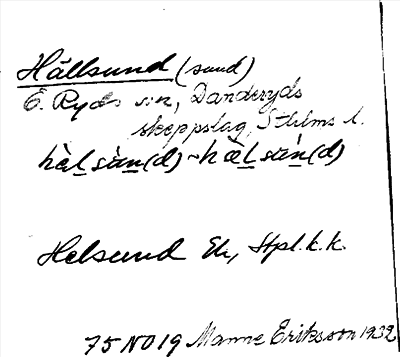 Hällsund (sund)
Ö. Ryds sn, Danderyds
skeppslag, Sthlms l.
hàlsùn(d) ~ hæ̀lsún(d)
Helsund Ek, Hpl.k.k.
75 NO 19 Manne Eriksson 1932